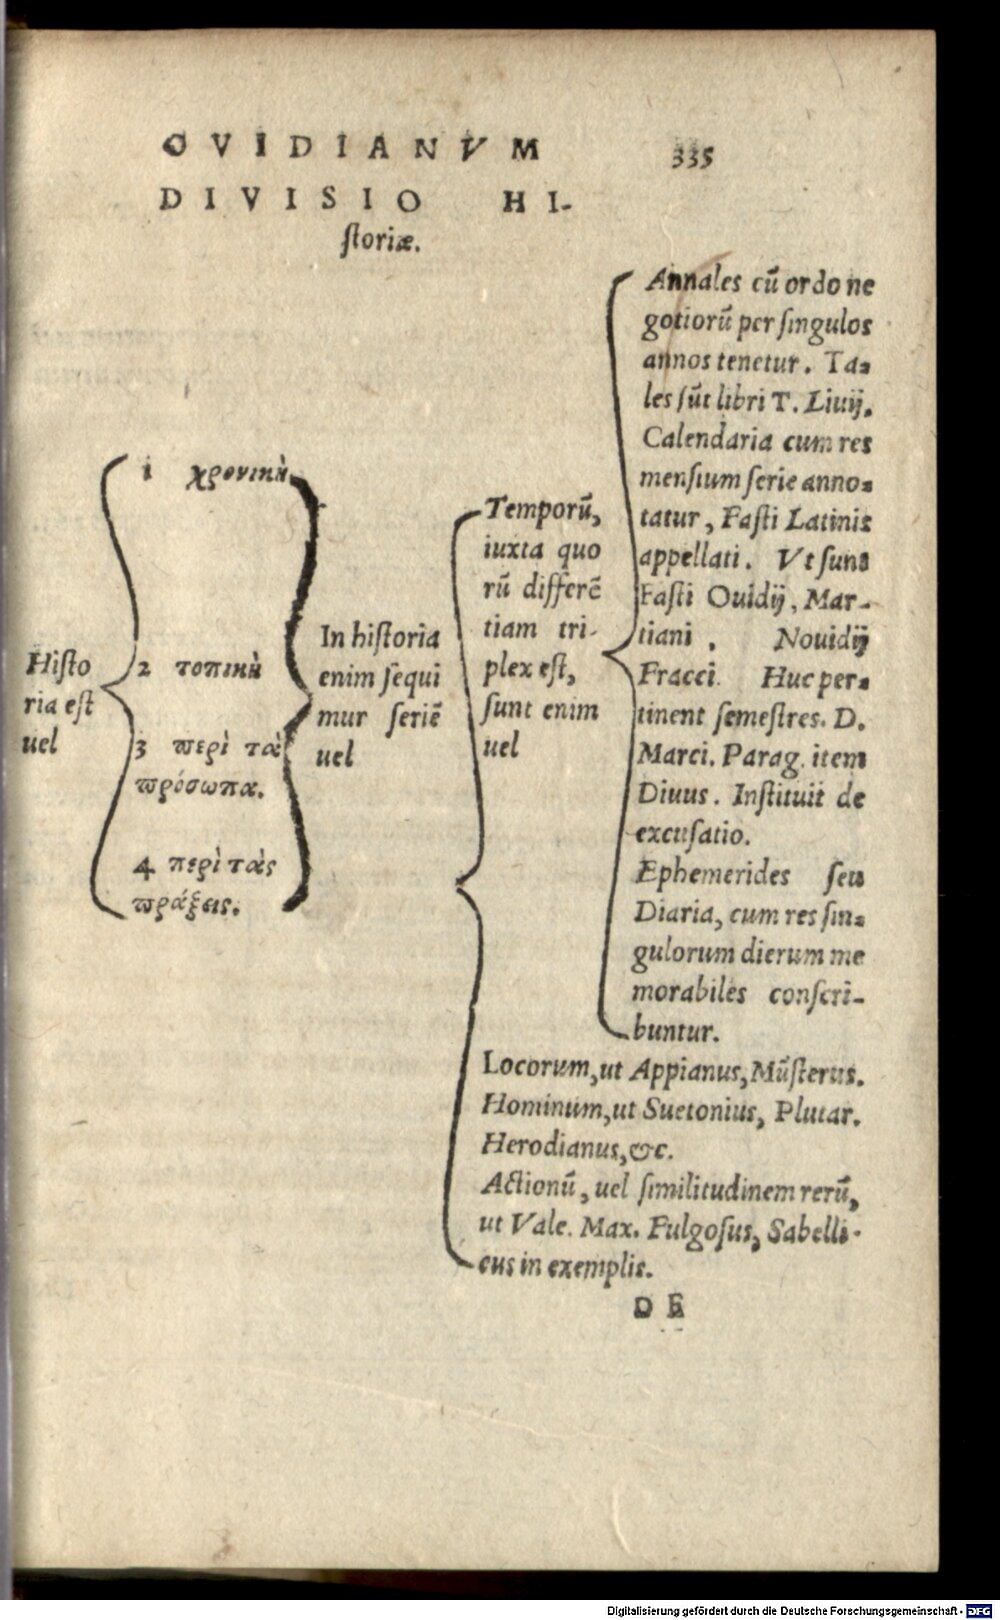 OVIDIANVM 335
DIVISIO HI-
ſtoriæ.
Hiſto
ria eſt
uel
1 χρονικὴ
2 τοπικὴ
3 περὶ τὰ
πρόσωπα.
4 περὶ τὰς
πράξεις.
In hiſtoria
enim ſequi
mur ſeriē
uel
Temporū,
iuxta quo
rū differē
tiam tri-
plex eſt,
ſunt enim
uel
Annales cū ordo ne
gotiorū per ſingulos
annos tenetur. Ta-
les ſūt libri T. Liuij.
Calendaria cum res
menſium ſerie anno-
tatur, Faſti Latinis
appellati. Vt ſunt
Faſti Ouidij, Mar-
tiani, Nouidij
Fracci. Huc per-
tinent ſemeſtres. D.
Marci. Parag. item
Diuus. Inſtituit de
excuſatio.
Ephemerides ſeu
Diaria, cum res ſin-
gulorum dierum me
morabiles conſcri-
buntur.
Locorum, ut Appianus, Mūſterus.
Hominum, ut Suetonius, Plutar.
Herodianus, &c.
Actionū, uel ſimilitudinem rerū,
ut Vale. Max. Fulgoſus, Sabelli-
cus in exemplis.
DE
Digitalisierung gefördert durch die Deutsche Forschungsgemeinschaft - DFG